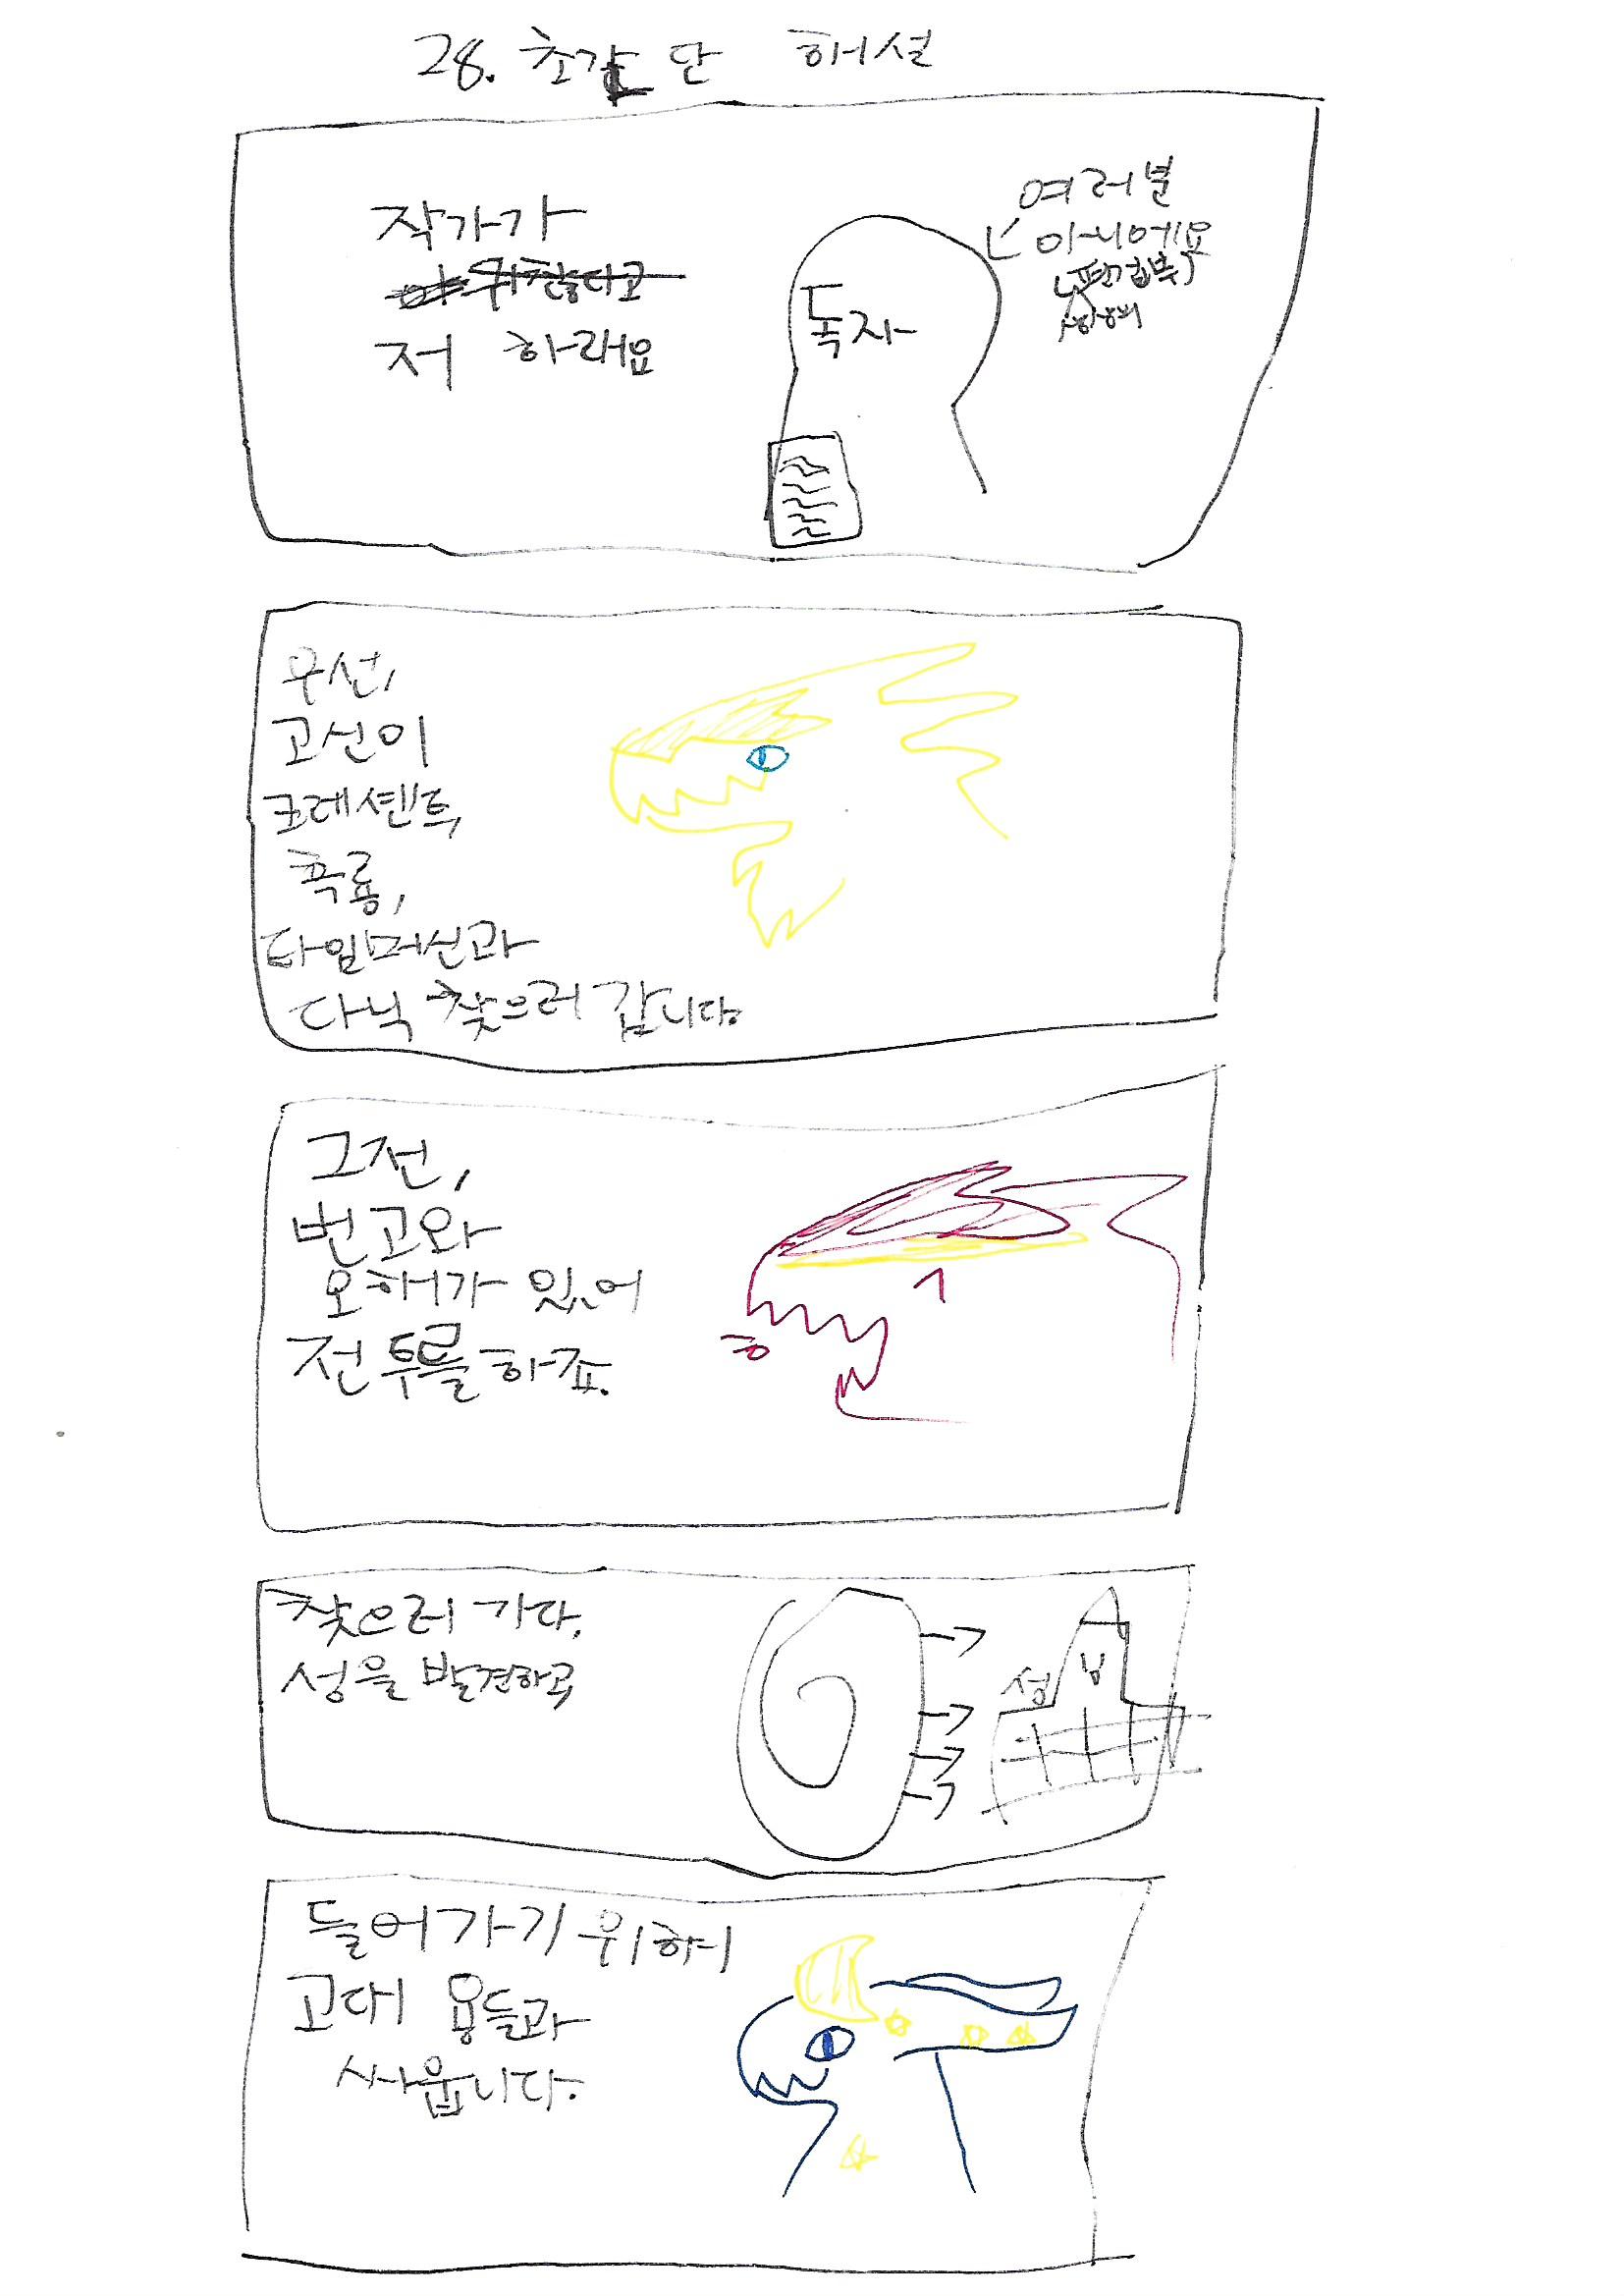 28. 초간단 해설
작가가
귀찮다고
저 하래요
독자
여러분
아니에요
우선,
고신이
크레센트,
흑룡,
타임머신과
다닉 찾으러 갑니다.
그전,
번고와
오해가 있어
전투를 하죠.
흥
찾으러 가다,
성을 발견하고
성
들어가기 위해
고대 용들과
싸웁니다.